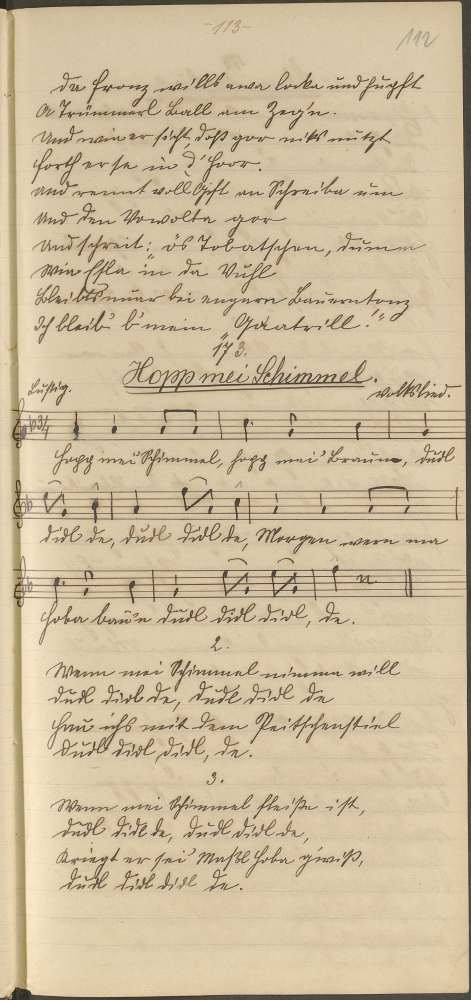 -113-
112
Da Franz wills awa locka und hupft
A Trümmerl Ball am Zeg'n.
Und wia er sicht, daß gor niks nutzt
forth er se in d' Hoor.
und rennt voll Gift an Schreiba um
Und den Vowolta gor
Und schreit: "ös Tobatschen, dumm
Wia Esla in da Wühl
Bleibts nuar bei engern Bauerntanz
Ich bleib' b' mein Gaatrill!"
173.
Hopp mei Schimmel.
Lustig.
Volkslied.
3/4
Hopp mei Schimmel, hopp mei Braun, dudl
didl de, dudl didl de, Morgen wern ma
Hoba bau'n dudl didl didl, de.
2.
Wenn mei Schimmel nimma will
dudl didl de, dudl didl de
Hau ichs mit dem Peitschenstiel
dudl didl didl, de.
3.
Wenn mei Schimmel fleißi ist,
dudl didl de, dudl didl de,
Kriegt er sei Maßl Hoba g'wiß,
dudl didl didl de.